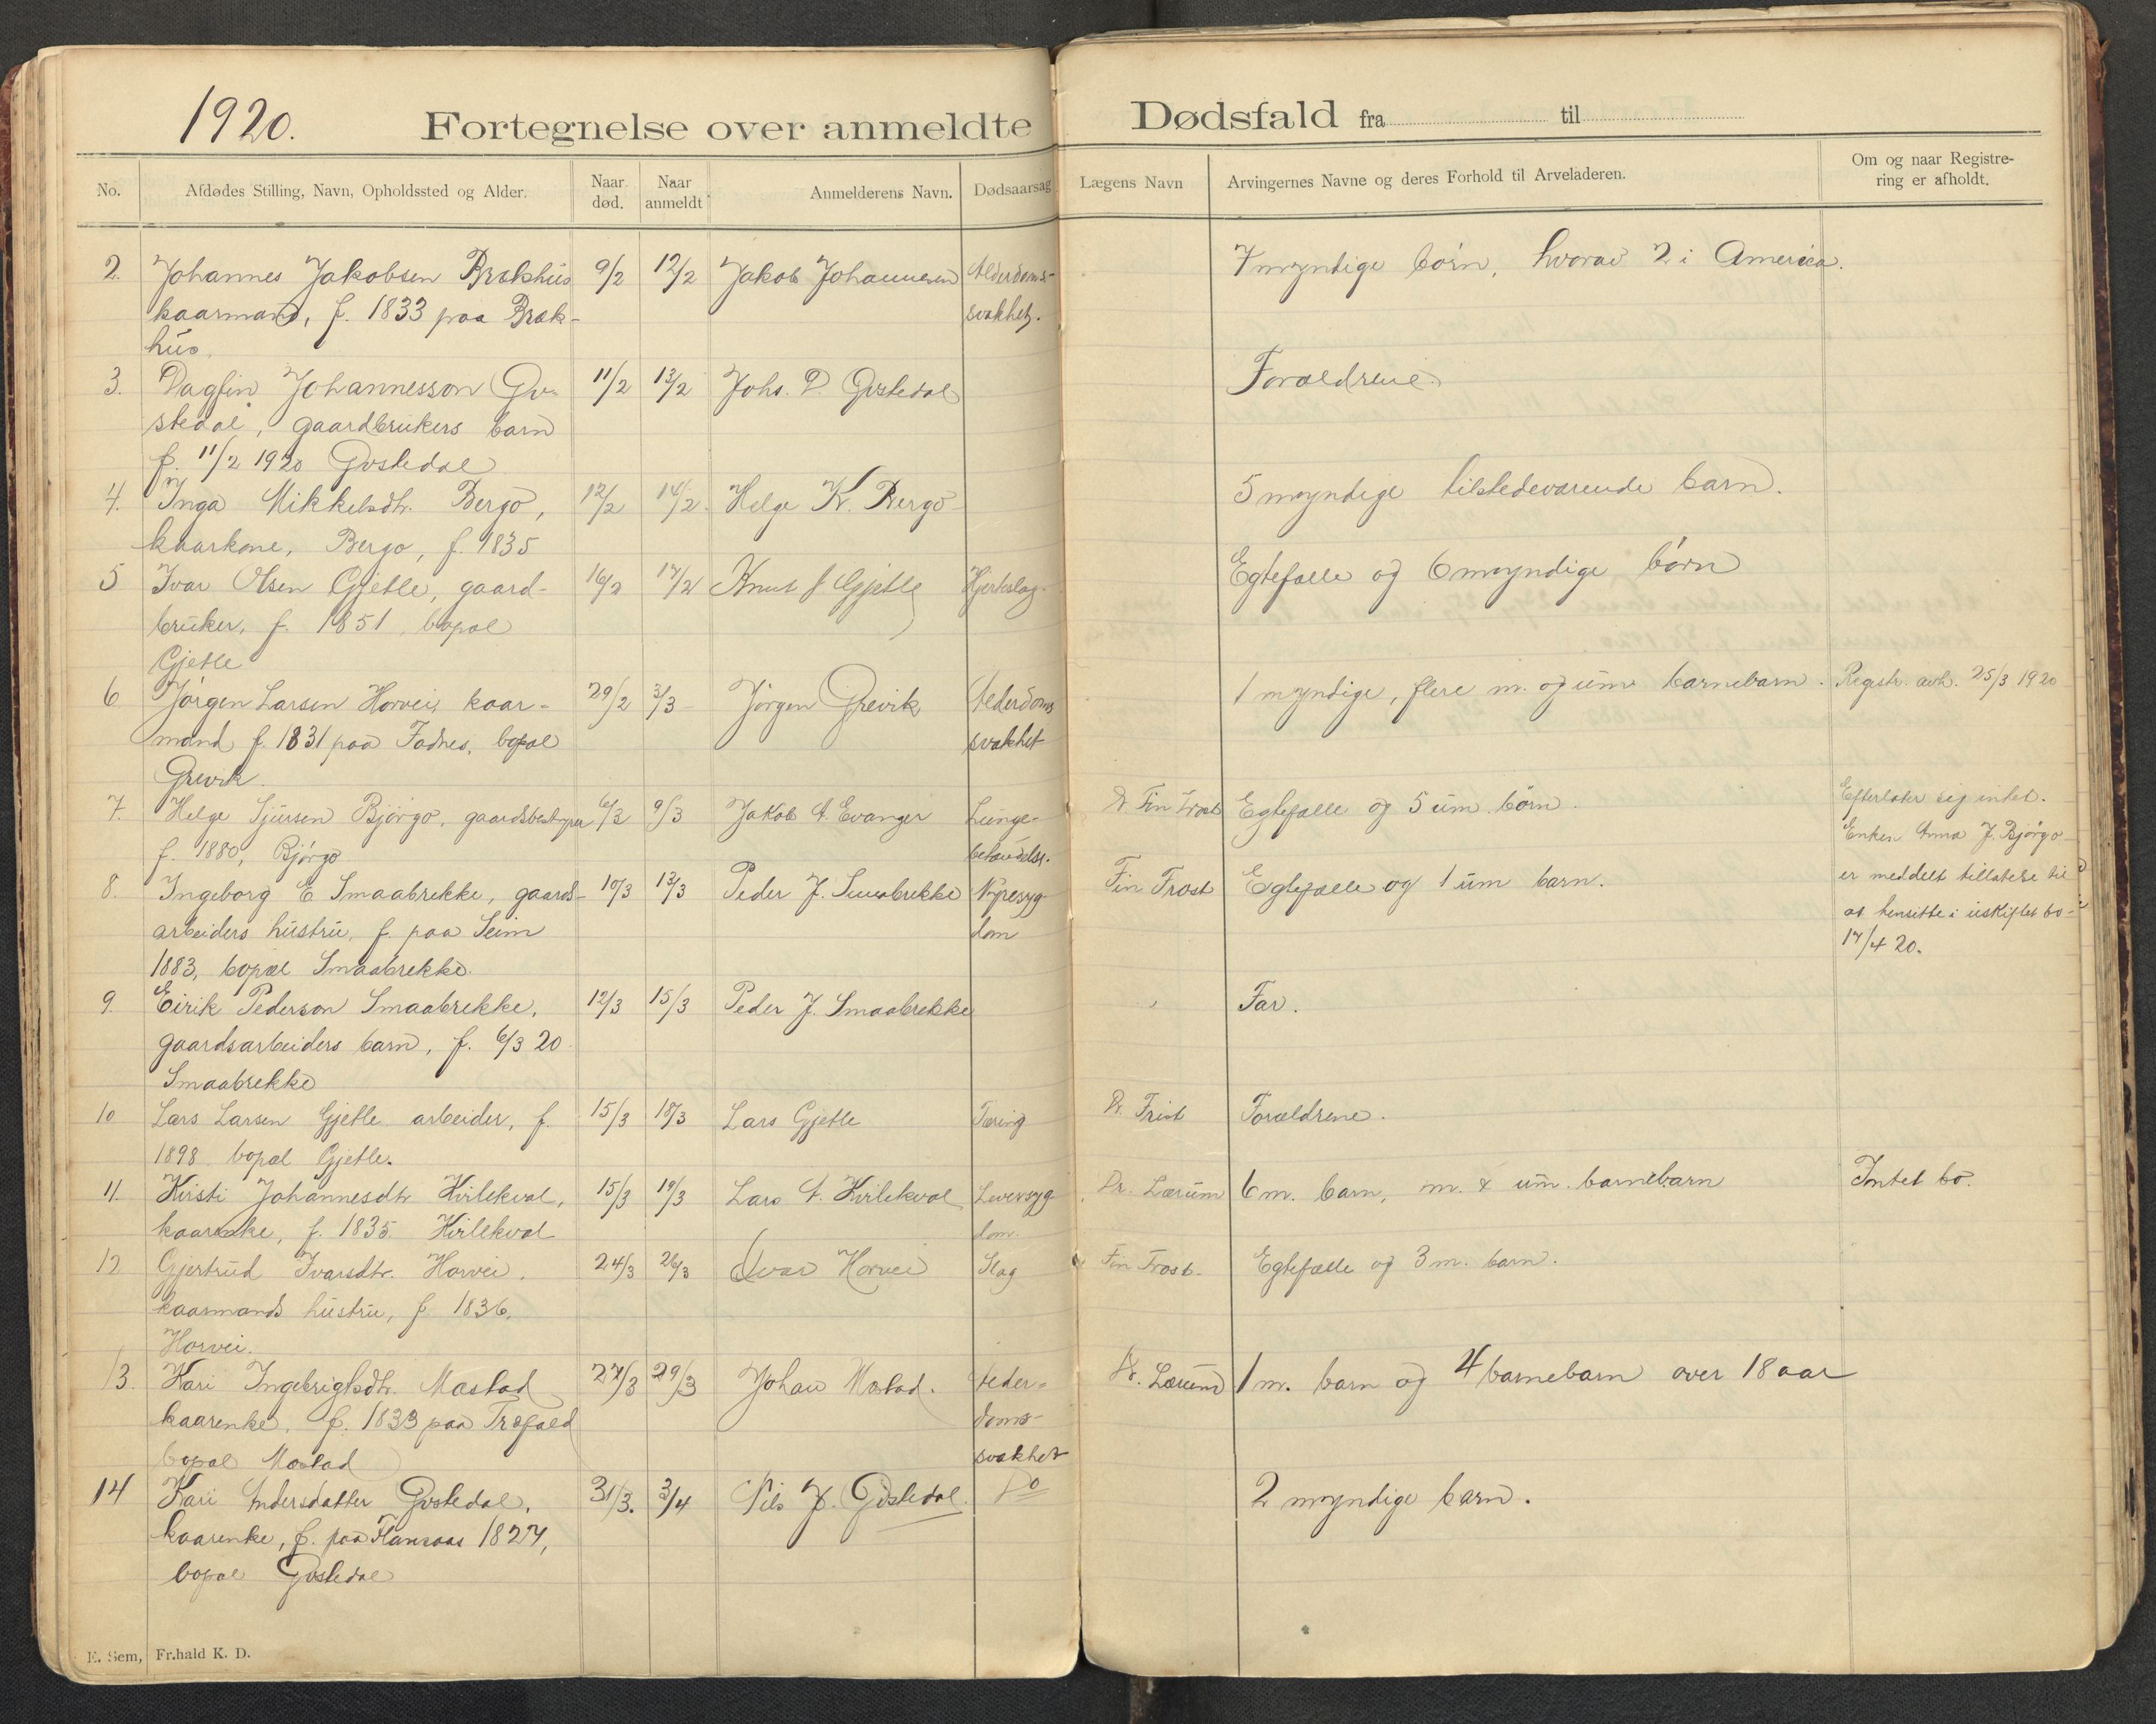 1920.
Fortegnelse over anmeldte Dødsfald fra til
No. Afdødes Stilling, Navn, Opholdssted og Alder. Naar død. Naar anmeldt Anmelderens Navn. Dødsaarsag Lægens Navn Arvingernes Navne og deres Forhold til Arveladeren. Om og naar Registrering er afholdt.
2. Johannes Jakobsen Brækhus 9/2 12/2 Jakob Johannesen Alderdoms- 7 myndige børn, hvorav 2 i America.
kaarmand, f. 1833 paa Bræk- svakhet.
hus
3. Dagfin Johannesson Gv- 11/2 13/2 Johs. D. Gvstedal Forældrene
stedal, gaardbrukers barn
f. 11/2 1920 Gvstedal
4. Inga Mikkelsdtr. Bergo, 12/2 14/2 Helge K. Bergo 5 myndige tilstedeværende barn.
kaarkone, Bergo, f. 1835
5 Ivar Olsen Gjetle, gaard- 16/2 17/2 Knut J Gjetle Hjerteslag. Egtefælle og 6 myndige børn
bruker, f. 1851, bopæl
Gjetle
6 Jørgen Larsen Horvei, kaar- 29/2 3/3 Jørgen Grevik Alderdoms 1 myndige, flere m. og um. barnebarn. Registr. avh. 25/3 1920
mand f. 1831 paa Fadnes, bopæl svakhet
Grevik
7. Helge Sjursen Bjørgo, gaardsbestyrer 6/3 9/3 Jakob A. Evanger Lunge- Dr. Fin Trost Egtefælle og 5 um. børn. Efterlater sig intet.
f. 1880, Bjørgo betændelse. Enken Anna J. Bjørgo
8. Ingeborg E Smaabrekke, gaards- 10/3 13/3 Peder J. Smaabrekke Nyresyg- Fin Trost Egtefælle og 1 um barn. er meddelt tillatelse til
arbeiders hustru, f. paa Seim dom at hensitte i uskiftet bo
1883, bopæl Smaabrekke. 17/4 20.
9. Eirik Pederson Smaabrekke, 12/3 15/3 Peder J. Smaabrekke Far.
gaardsarbeiders barn, f. 6/3 20
Smaabrekke
10 Lars Larsen Gjetle arbeider, f. 15/3 18/3 Lars Gjetle Tæring Dr. Trost Forældrene.
1898. bopæl Gjetle.
11. Kirsti Johannesdtr Kvilekval, 15/3 19/3 Lars A. Kvilekval Leversyg- Dr. Lærum 6 m. barn, m. & um. barnebarn Intet bo.
kaarenke, f. 1835. Kvilekval dom.
12 Gjertrud Ivarsdtr. Horvei, 24/3 26/3 Ivar Horvei Slag Fin Trost. Egtefælle og 3 m. barn.
kaarmands hustru, f. 1836,
Horvei.
13. Kari Ingebrigtsdtr. Mastad 27/3 29/3 Johan Mastad. Alder- Dr. Lærum 1 m. barn og 4 barnebarn over 18 aar
kaarenke, f. 1833 paa Træfald doms-
bopæl Mastad svakhet
14 Kari Andersdatter Gvstedal, 31/3. 3/4 Nils J. Gvstedal. Do 2 myndige barn.
kaarenke, f. paa Flamsaas 1827,
bopæl Gvstedal
E. Sem, Fr.hald K. D.